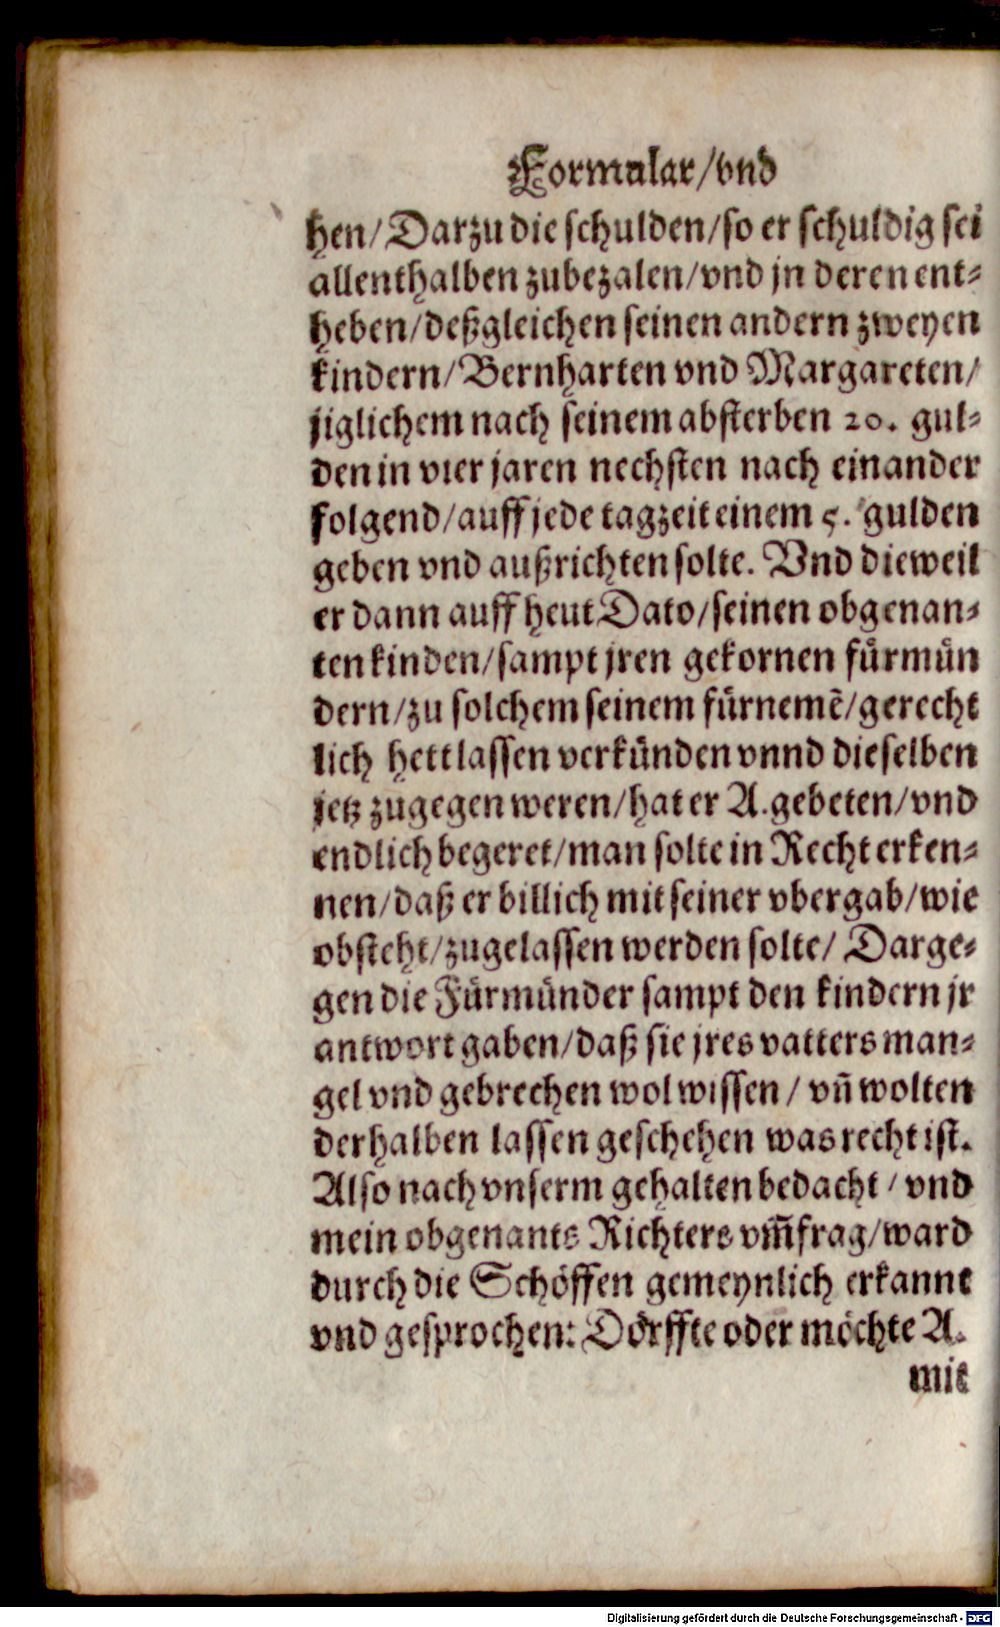 Formular/vnd
hen/Darzu die schulden/so er schuldig sei
allenthalben zubezalen/vnd jn deren ent-
heben/deßgleichen seinen andern zweyen
kindern/Bernharten vnd Margareten/
jiglichem nach seinem absterben 20. gul-
den in vier jaren nechsten nach einander
folgend/auff jede tagzeit einem 5. gulden
geben vnd außrichten solte. Vnd dieweil
er dann auff heut Dato/seinen obgenan-
ten kinden/sampt jren gekornen fürmün
dern/zu solchem seinem fürnemē/gerecht
lich hett lassen verkünden vnnd dieselben
jetz zugegen weren/hat er A.gebeten/vnd
endlich begeret/man solte in Recht erken-
nen/daß er billich mit seiner vbergab/wie
obsteht/zugelassen werden solte/ Darge-
gen die Fürmünder sampt den kindern jr
antwort gaben/daß sie jres vatters man-
gel vnd gebrechen wol wissen / vñ wolten
derhalben lassen geschehen was recht ist.
Also nach vnserm gehalten bedacht / vnd
mein obgenants Richters vm̃frag/ward
durch die Schöffen gemeynlich erkannt
vnd gesprochen: Dörffte oder möchte A.
mit
Digitalisierung gefördert durch die Deutsche Forschungsgemeinschaft - DFG